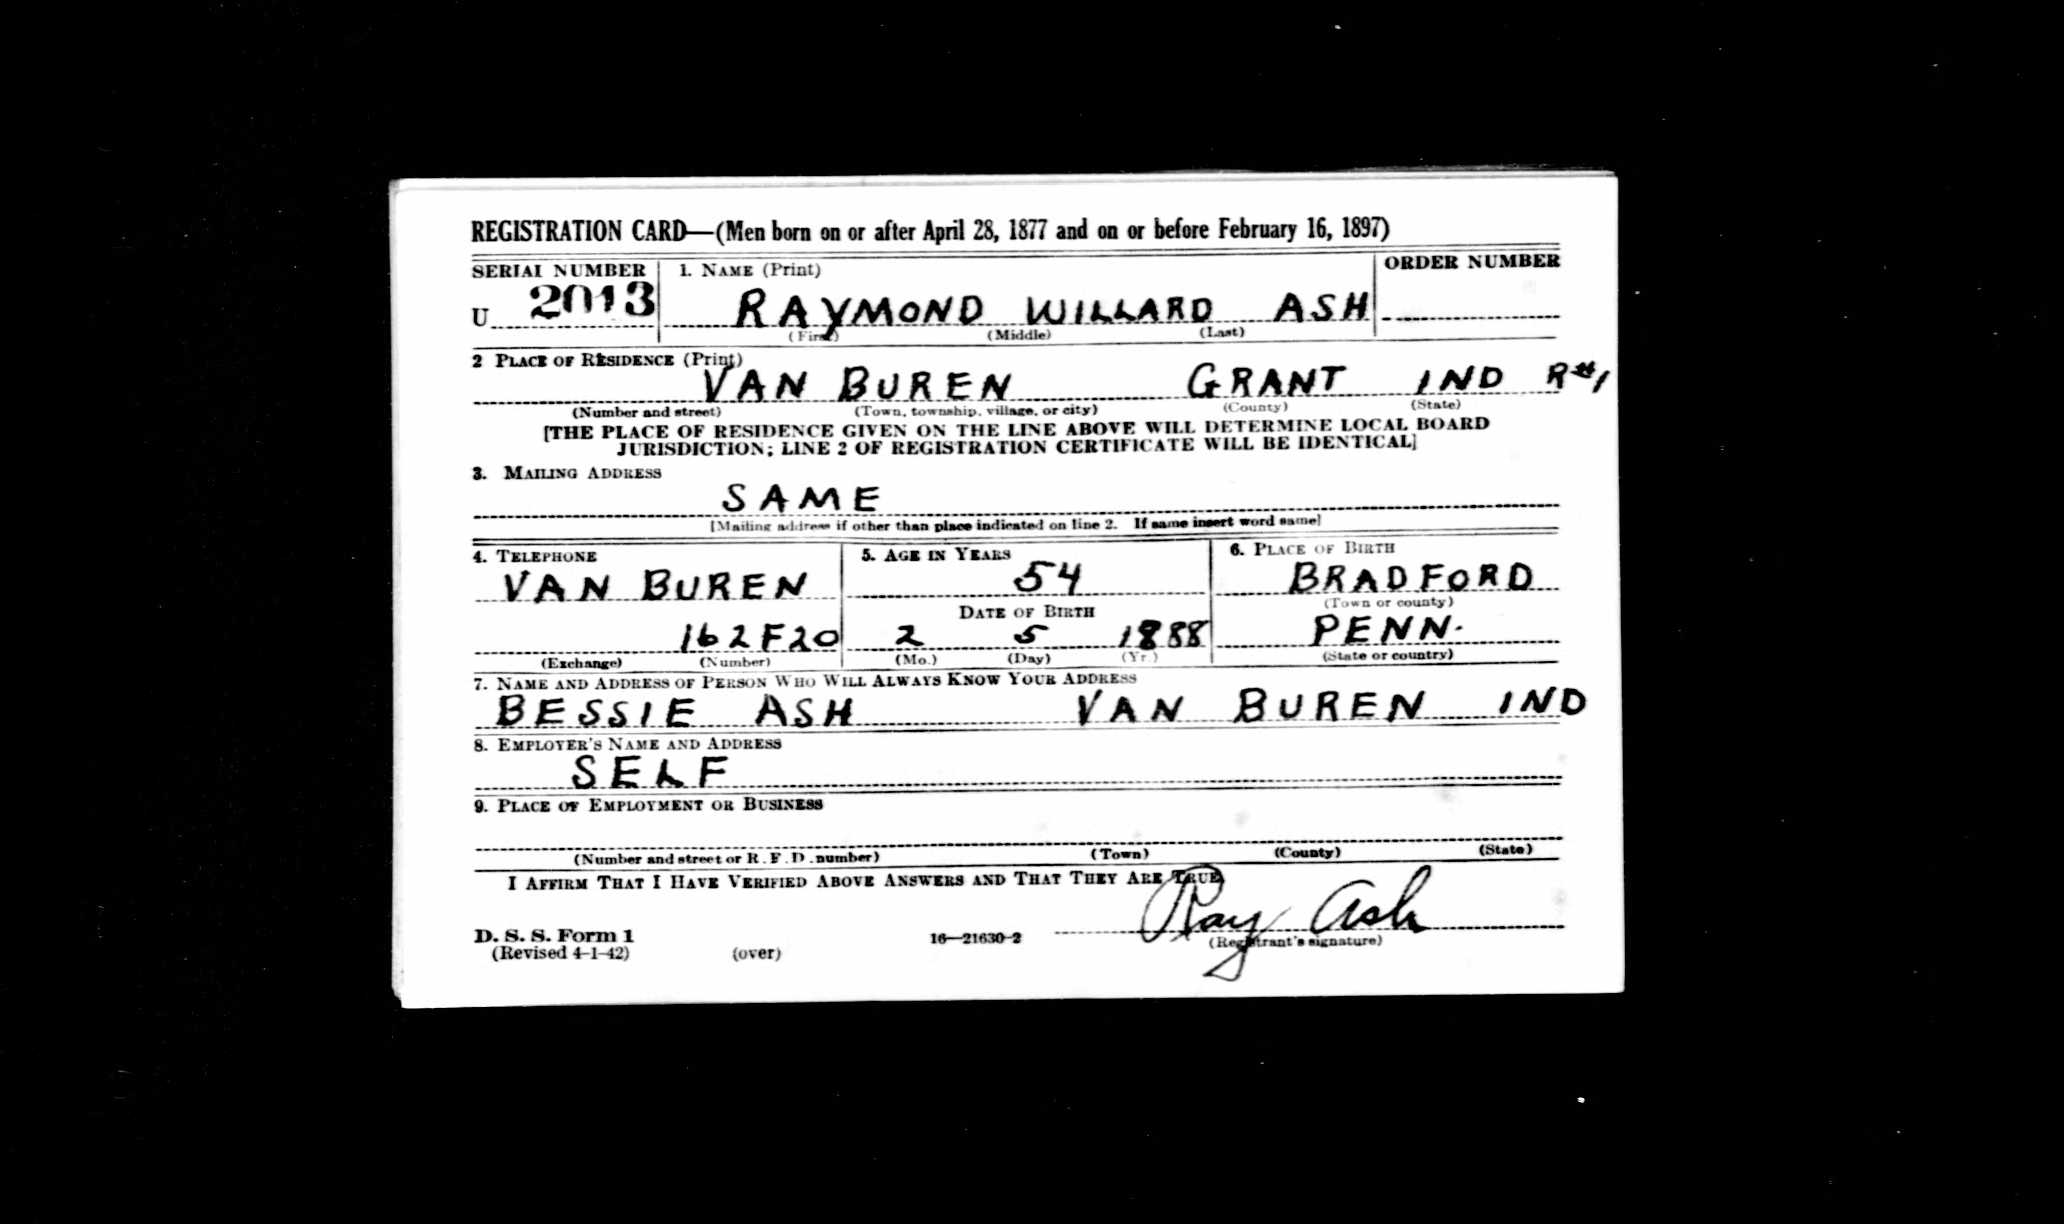 REGISTRATION CARD—(Men born on or after April 28, 1877 and on or before February 16, 1897)
SERIAL NUMBER 1. NAME (Print) ORDER NUMBER
U 2013 RAYMOND WILLARD ASH
(First) (Middle) (Last)
2 PLACE OF RESIDENCE (Print)
VAN BUREN GRANT IND R#1
(Number and street) (Town, township, village, or city) (County) (State)
[THE PLACE OF RESIDENCE GIVEN ON THE LINE ABOVE WILL DETERMINE LOCAL BOARD
JURISDICTION; LINE 2 OF REGISTRATION CERTIFICATE WILL BE IDENTICAL]
3. MAILING ADDRESS
SAME
[Mailing address if other than place indicated on line 2. If same insert word same]
4. TELEPHONE 5. AGE IN YEARS 6. PLACE OF BIRTH
VAN BUREN 54 BRADFORD
DATE OF BIRTH (Town or county)
162F20 2 5 1888 PENN.
(Exchange) (Number) (Mo.) (Day) (Yr.) (State or country)
7. NAME AND ADDRESS OF PERSON WHO WILL ALWAYS KNOW YOUR ADDRESS
BESSIE ASH VAN BUREN IND
8. EMPLOYER'S NAME AND ADDRESS
SELF
9. PLACE OF EMPLOYMENT OR BUSINESS
(Number and street or R.F.D. number) (Town) (County) (State)
I AFFIRM THAT I HAVE VERIFIED ABOVE ANSWERS AND THAT THEY ARE TRUE
Ray Ash
D. S. S. Form 1 16—21630-2 (Registrant's signature)
(Revised 4-1-42) (over)